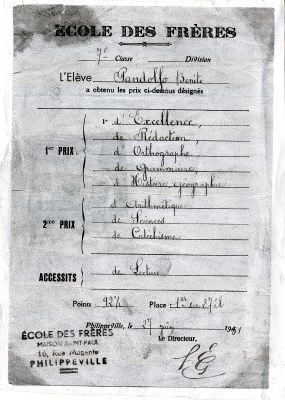 ÉCOLE DES FRÈRES
7e Classe Division
L'Elève Pandolfo Benite
a obtenu les prix ci-dessous désignés
1er PRIX
1° d'Excellence,
de Rédaction,
d'Orthographe,
de Grammaire,
d'Histoire géographie
2me PRIX
d'Arithmétique
de Sciences
de Catéchisme
ACCESSITS
de Lecture
Points 924 Place: 1er sur 27 él
Philippeville, le 27 juin 19
Le Directeur,
ÉCOLE DES FRÈRES
MAISON SAINT-PAUL
16, Rue Magenta
PHILIPPEVILLE